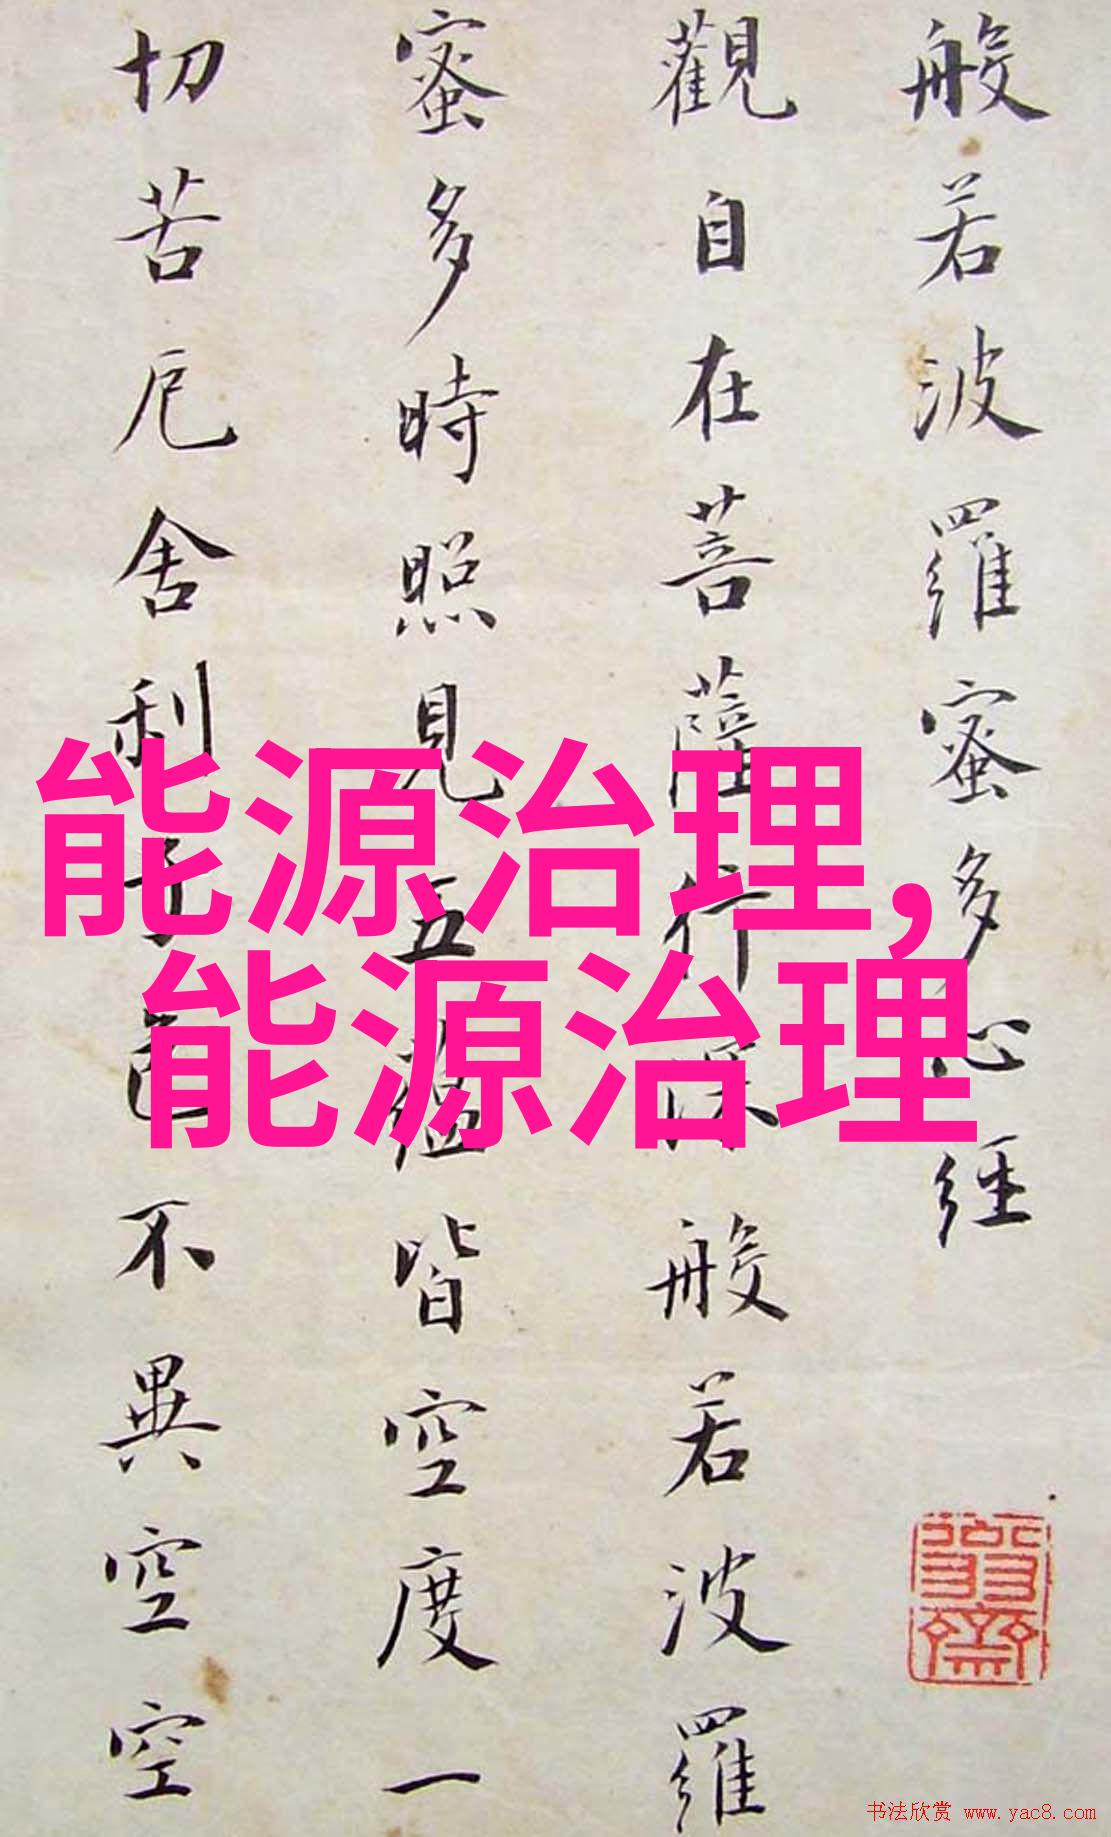 般若波羅蜜多心經
觀自在菩薩行深般若波羅
蜜多時照見五蘊皆空度一
切苦厄舍利子色不異空空
能源治理,
能源治理
书法欣赏 www.yac8.com